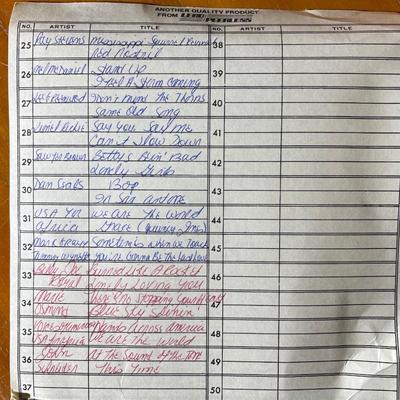 ANOTHER QUALITY PRODUCT
FROM
NO. ARTIST TITLE NO. ARTIST TITLE
25 Ray Stevens Mississippi Squirrel Revival 38
Red Redtail
26 Mel McDaniel Stand Up 39
I Feel A Storm Coming
27 Lee Greenwood I Don't Mind The Thorns 40
Same Old Song
28 Lionel Richie Say You, Say Me 41
Can't Slow Down
29 Sawyer Brown Betty's Bein' Bad 42
Lonely Girls
30 Dan Seals Bop 43
In San Antone
31 USA For We Are The World 44
Africa Grace (Quincy Jones)
32 Mark Gray Sometimes When We Touch 45
Tammy Wynette You're Gonna Be The Last Love
33 Billy Joe Burned Like A Rocket 46
Royal Lonely Loving You
34 Marie There's No Stopping Your Heart 47
Osmond Blue Sky Shinin'
35 Hands Across America 48
We Are The World
36 John At The Sound Of The Tone 49
Schneider This Time
37 50